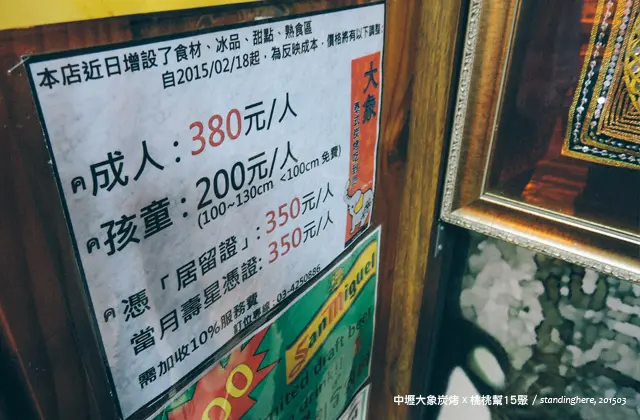 本店近日增設了食材、冰品、甜點、熟食區
自2015/02/18起，為反映成本，價格將有以下調整
ค成人：380元/人
ค孩童：200元/人
(100~130cm <100cm免費)
ค憑「居留證」：350元/人
當月壽星憑證：350元/人
需加收10%服務費
訂位專線：03-4250886
大象
泰式炭烤吃到飽
San Miguel
unlimited draft beer
00
中壢大象炭烤 x 桃桃幫15聚 / standinghere, 201503